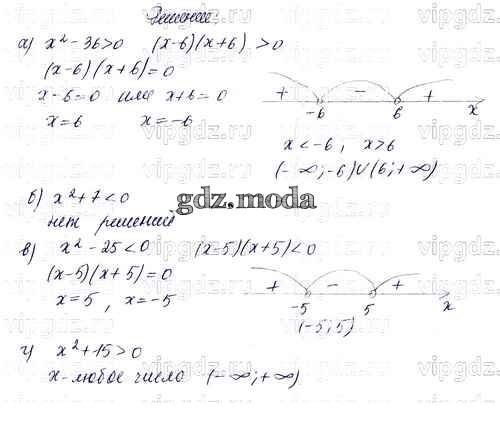 Решение.
а) x² - 36 > 0   (x-6)(x+6) > 0
(x-6)(x+6) = 0
x-6=0 или x+6=0
x=6   x=-6
+ - +
-6 6 x
x<-6, x>6
(-∞; -6)∪(6; +∞)
б) x² + 7 < 0
нет решений
gdz.moda
в) x² - 25 < 0   (x-5)(x+5) < 0
(x-5)(x+5) = 0
x=5, x=-5
+ - +
-5 5 x
(-5; 5)
г) x² + 15 > 0
x - любое число (-∞; +∞)
vipgdz.ru